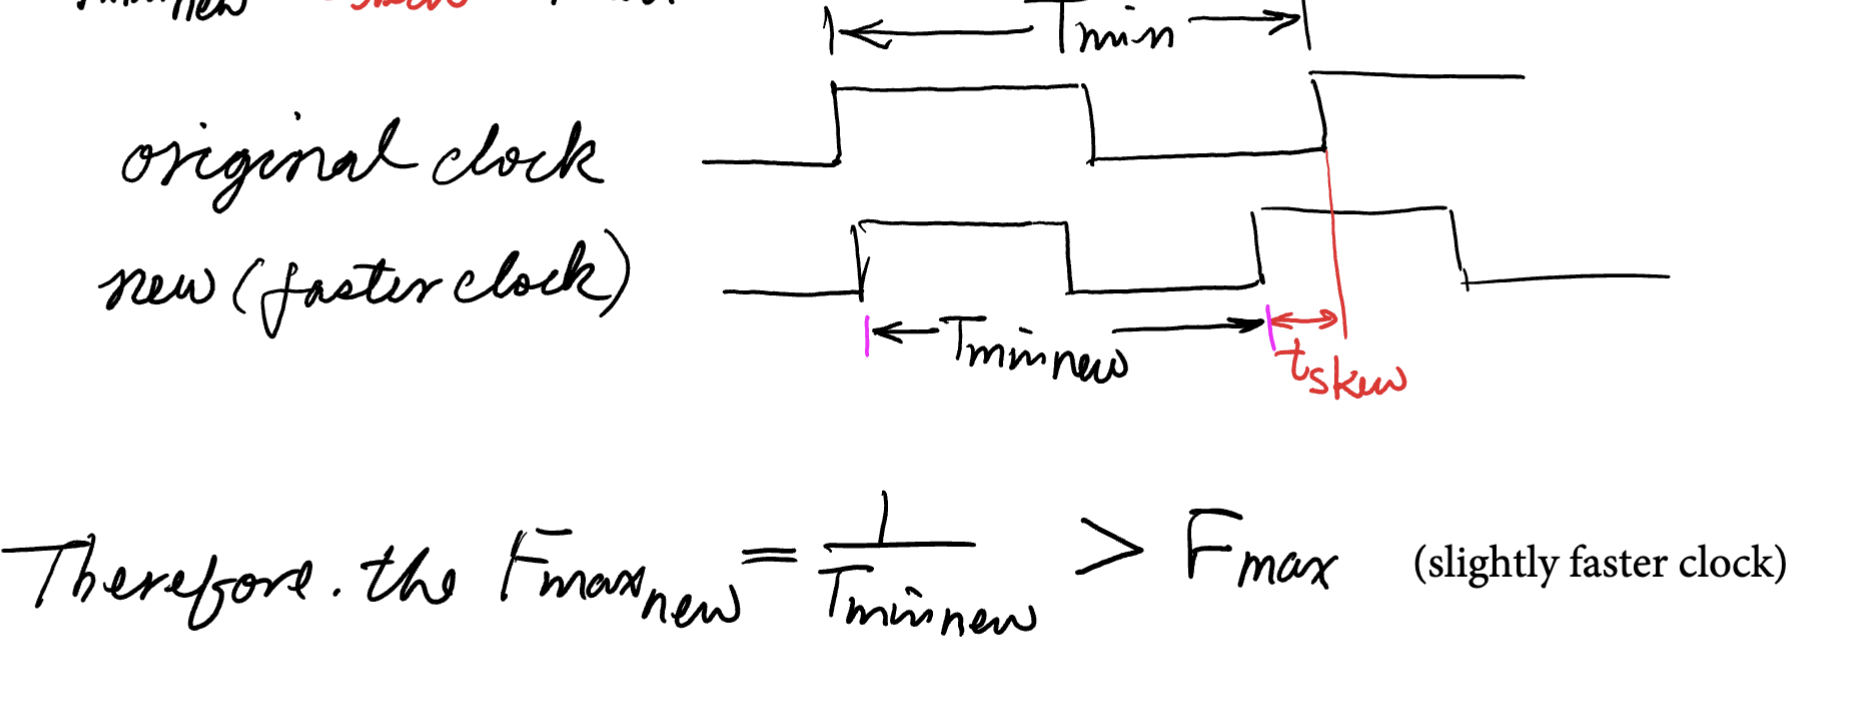 Tmin
original clock
new (faster clock)
Tmin new
tskew
Therefore. the Fmax new = 1 / Tmin new > Fmax (slightly faster clock)